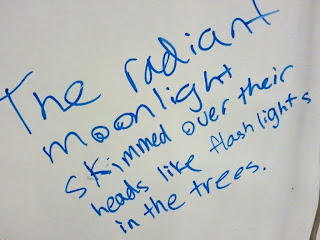 The radiant
moonlight
skimmed over their
heads like flashlights
in the trees.